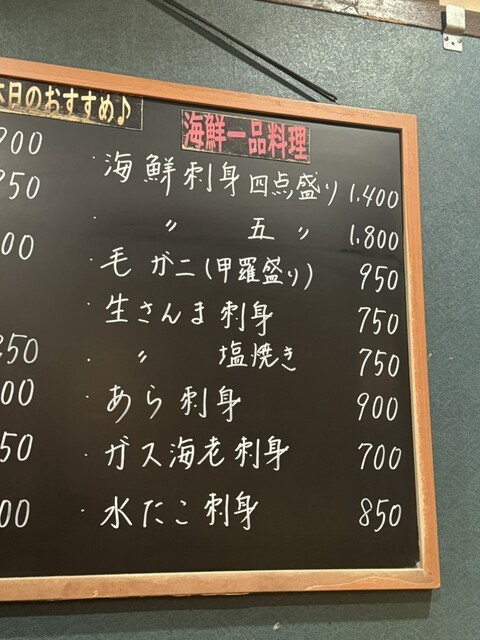 本日のおすすめ♪
海鮮一品料理
900
950
00
350
00
50
00
・海鮮刺身四点盛り 1,400
・〃 五〃 1,800
・毛ガニ(甲羅盛り) 950
・生さんま刺身 750
・〃 塩焼き 750
・あら刺身 900
・ガス海老刺身 700
・水たこ刺身 850